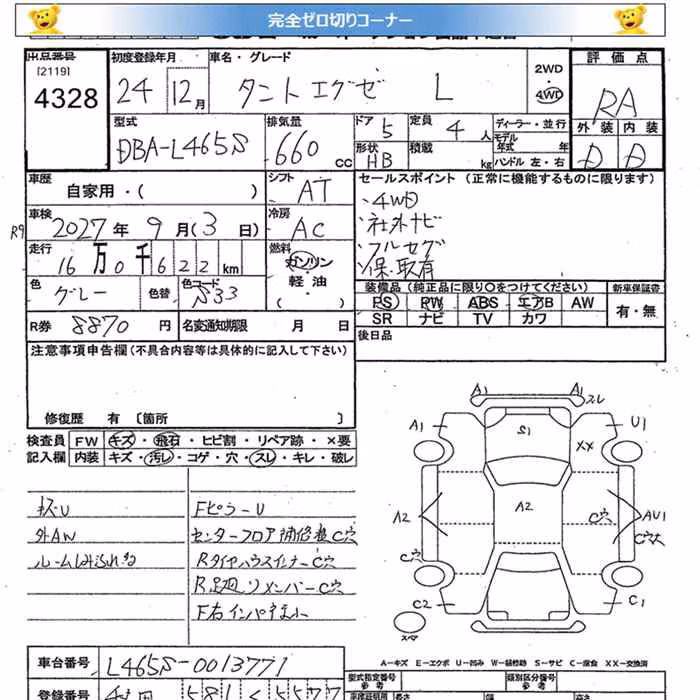 完全ゼロ切りコーナー
出品番号 初度登録年月 車名・グレード 2WD 評価点
[2119]
4328 24年 12月 タントエグゼ L 4WD RA
型式 排気量 ドア 定員 ディーラー・並行 外装 内装
DBA-L465S 660 cc 5 4人 モデル年式 年 D D
形状 積載
HB kg ハンドル 左・右
車歴 シフト セールスポイント (正常に機能するものに限ります)
自家用・( ) AT ・4WD
車検 冷房 ・社外ナビ
R9 2027年 9月(3日) AC ・フルセグ
走行 燃料 ・保、取有
16万0千622km ガソリン・軽油 ( )
色 色替 色コード 装備品 (純正品に限り○をつけてください) 新車保証書
グレー S33 PS PW ABS エアB AW 有・無
SR ナビ TV カワ
R券 8870円 名変通知期限 月 日 後日品
注意事項申告欄(不具合内容等は具体的に記入して下さい)
修復歴 有 〔箇所 〕
検査員 FW キズ・飛石・ヒビ割・リペア跡・×要
記入欄 内装 キズ・汚レ・コゲ・穴・スレ・キレ・破レ
Fピラーu
外AW
C穴
A1 A1 スレ
A1 S1 U1
XX
A2 A2 C穴 AU1
C穴大
C穴
C2 C1
スペア
A―キズ E―エクボ U―凹み W―補修跡 S―サビ C―腐食 XX―交換済
車台番号 L465S-0013771
型式指定番号 類別区分番号
参考 参考
登録番号 581 5577